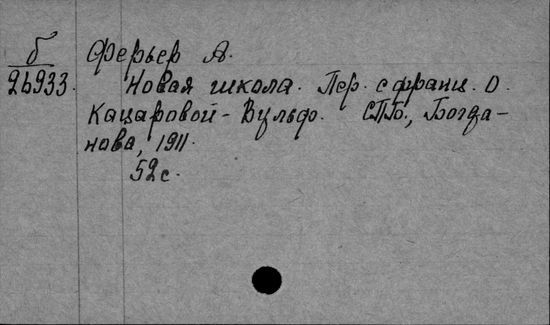 б Ферьер А.
26933. Новая школа. Пер. с франц. О.
Кацаровой-Вульф. СПБ., Богда-
нова, 1911.
52 с.